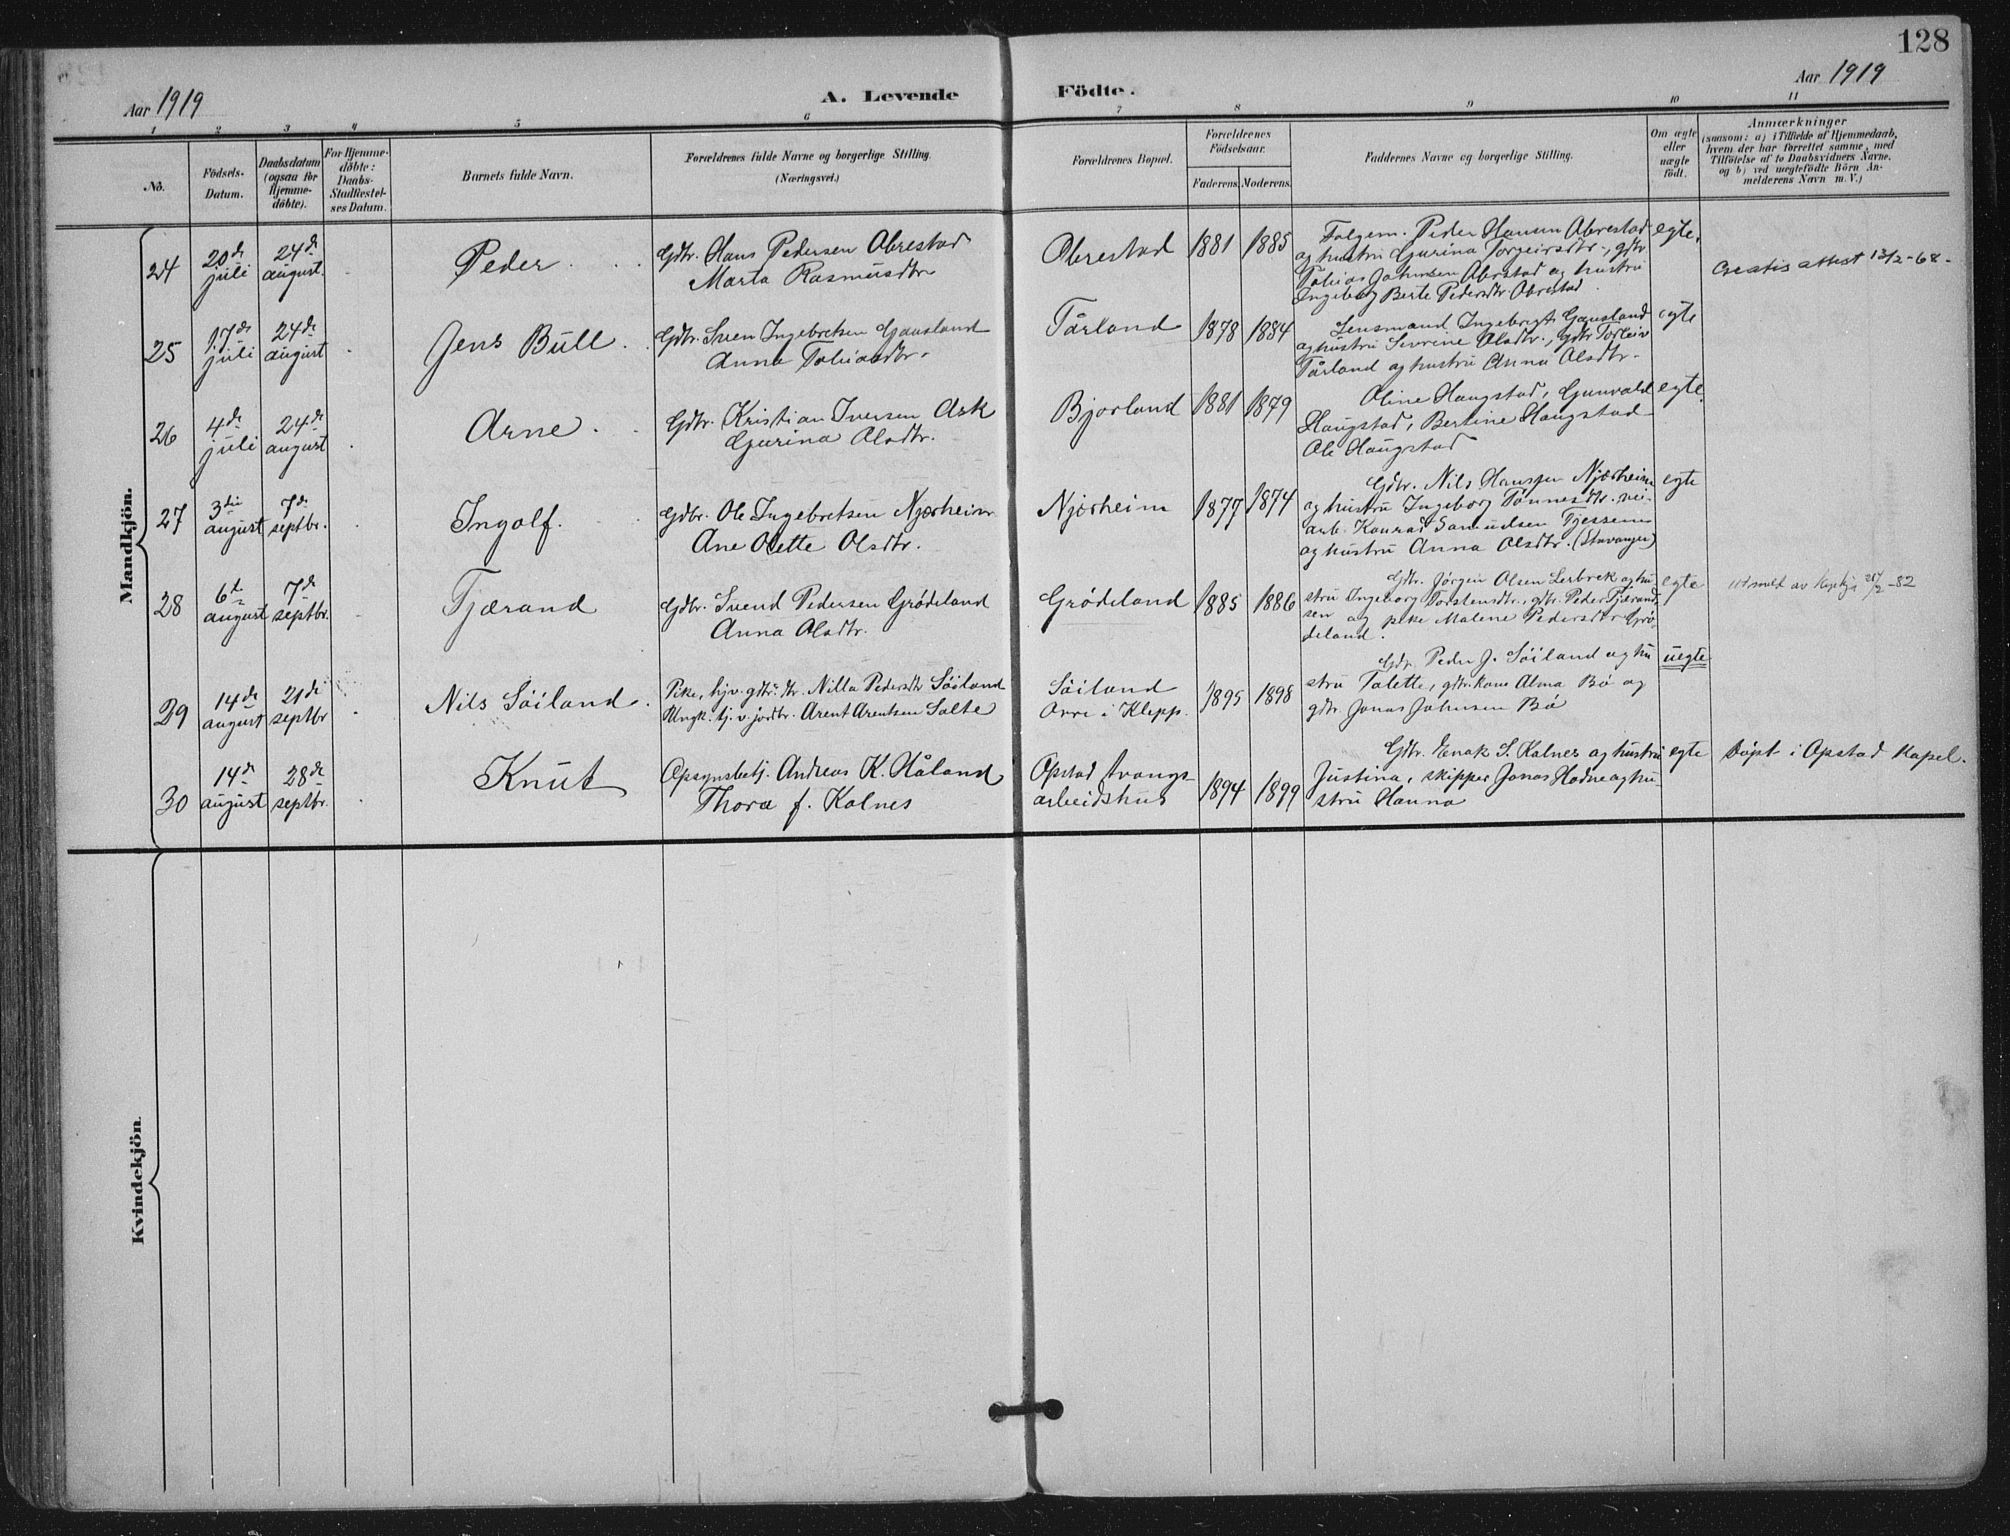 128
Aar 1919
A. Levende Födte.
Aar 1919
1 2 3 4 5 6 7 8 9 10 11
No.
Födsels-
Datum.
Daabsdatum
(ogsaa for
Hjemme-
döbte).
For Hjemme-
döbte:
Daabs-
Stadfæstel-
ses Datum.
Barnets fulde Navn.
Forældrenes fulde Navne og borgerlige Stilling.
(Næringsvei.)
Forældrenes Bopæl.
Forældrenes
Födselsaar.
Faderens. Moderens.
Faddernes Navne og borgerlige Stilling.
Om ægte
eller
uægte
födt.
Anmærkninger
(saasom: a) i Tilfælde af Hjemmedaab,
hvem der har forrettet samme, med
Tilföielse af to Daabsvidners Navne,
og b) ved uægtefödte Börn An-
melderens Navn m. V.)
Mandkjön.
24
20de
juli
24de
august.
Peder
Gdbr. Hans Pedersen Obrestad
Marta Rasmusdtr
Obrestad
1881 1885
Folgem. Peder Hansen Obrestad
og hustru Gurina Torgeirsdtr., gdbr
Tobias Johnsen Obrestad og hustru
Ingeborg Berte Pedersdtr Obrestad
egte.
Gratis attest 13/2-68-
25
17de
juli
24de
august
Jens Bull
Gdbr. Sven Ingebretsen Gausland
Anna Tobiasdtr.
Tårland
1878 1884
Lensmand Ingebrigt Gausland
og hustru Sevrine Olsdtr., gdbr Torleiv
Tårland og hustru Anna Olsdtr.
egte
26
4de
juli
24de
august
Arne
Gdbr. Kristian Iversen Ask
Gurina Olsdtr.
Bjorland
1881 1879
Oline Haugstad, Gunvald
Haugstad, Bertine Haugstad
Ole Haugstad
egte
27
3die
august
7de
septbr.
Ingolf.
Gdbr. Ole Ingebretsen Njærheim
Ane Olette Olsdtr.
Njærheim
1877 1874
Gdbr. Nils Hanssen Njærheim
og hustru Ingeborg Tønnesdtr. vei-
arb. Konrad Samuelsen Tjessem
og hustru Anna Olsdtr. (Stavanger)
egte
28
6te
august
7de
septbr.
Tjærand
Gdbr. Svend Pedersen Grødeland
Anna Olsdtr.
Grødeland
1885 1886
Gdbr. Jørgen Olsen Lerbrek og hu-
stru Ingeborg Torstensdtr., gdbr. Peder Tjærand-
sen og pike Malene Pedersdtr Grø-
deland.
egte
29
14de
august
21de
septbr
Nils Söiland
Pike, hjv. gdbr. dtr. Nilla Pedersdtr Söiland
Ungk. tj. v. jordbr. Arent Arentsen Salte
Söiland
Orre i Klepp.
1895 1898
Gdbr. Peder J. Söiland og hu
stru Talette, gdbr. kone Alma Bø og
gdbr. Jonas Johnsen Bø
uegte
30
14de
august
28de
septbr.
Knut
Opsynsbetj. Andreas K. Håland
Thora f. Kalnes
Opstad tvangs-
arbeidshus
1894 1899
Gdbr. Enok S. Kalnes og hustru
Justina, skipper Jonas Hodne og hu-
stru Hanna
egte
Döpt i Opstad Kapel.
Kvindekjön.